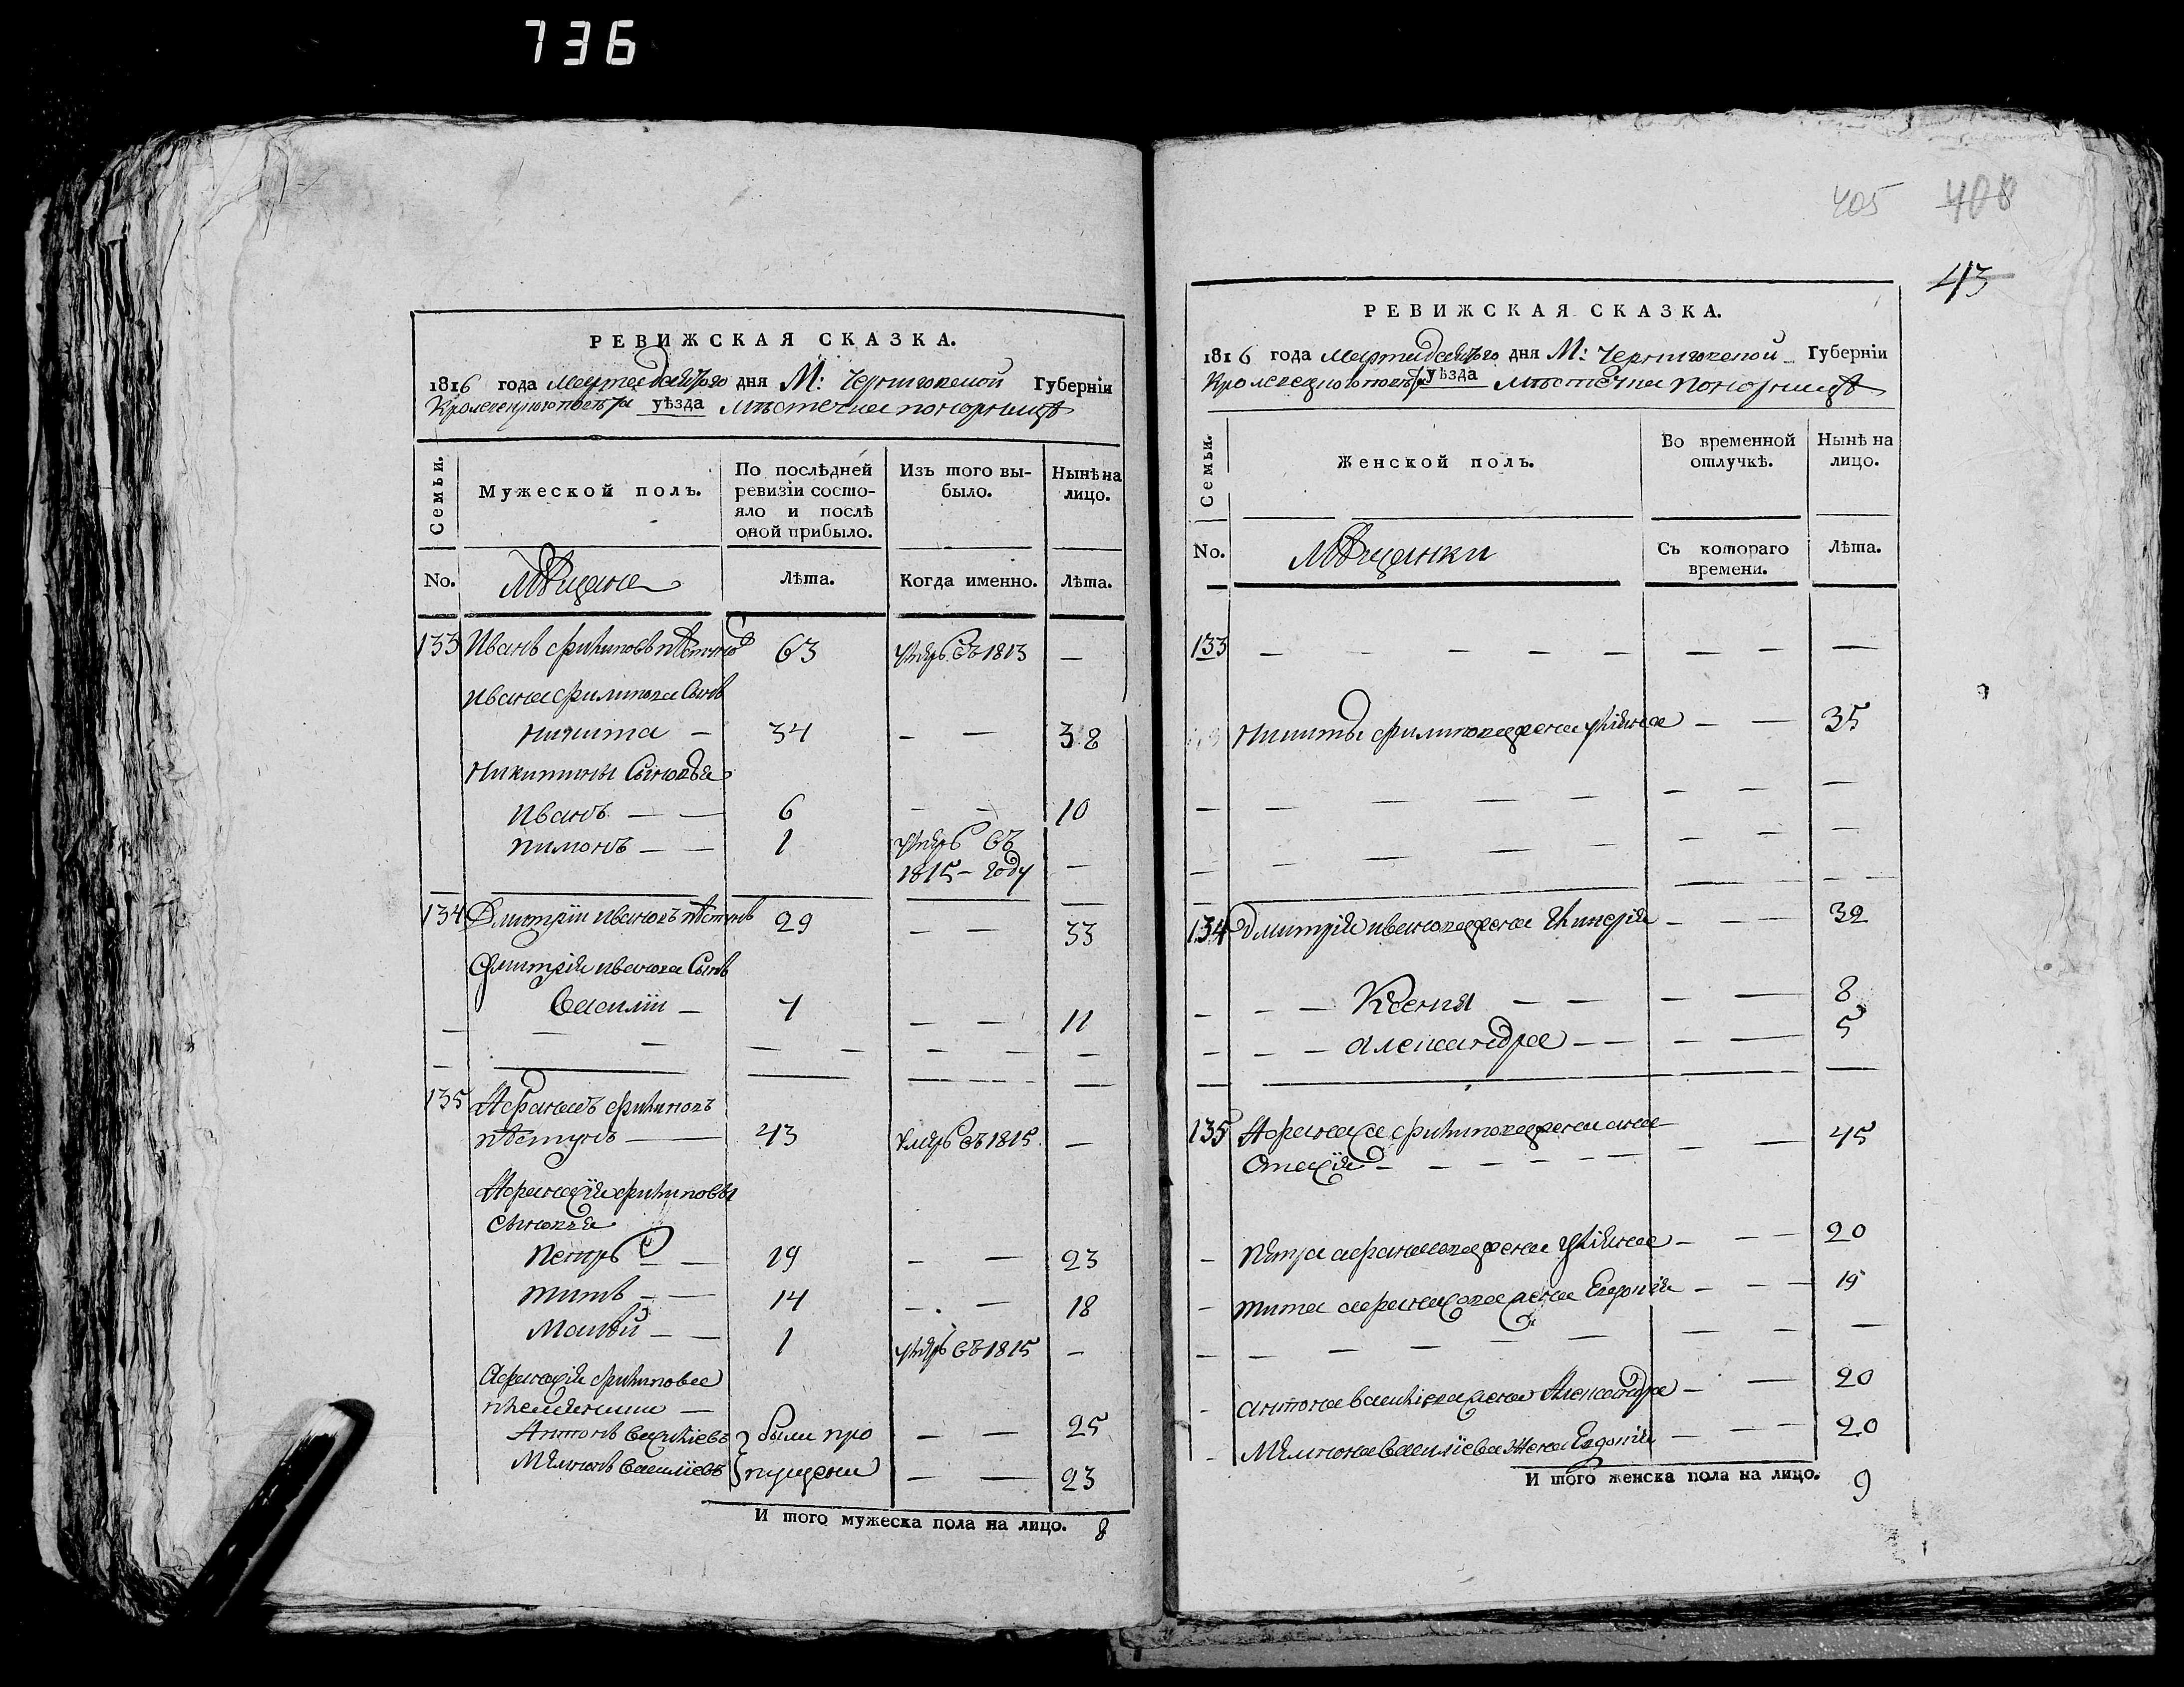 736
РЕВИЖСКАЯ СКАЗКА.
1816 года Марта дня М: Черниговской Губерніи
Кролевецкого повѣта уѣзда Мѣстечка Понорницѣ
Семьи.
Мужеской полъ.
По послѣдней ревизіи состояло и послѣ оной прибыло.
Изъ того выбыло.
Нынѣ на лицо.
No.
Мѣщане
Лѣта.
Когда именно.
Лѣта.
133 Иванъ Филиповъ 63 умеръ въ 1813 —
Ивана Филипова Сынъ
Никита — 34 — — 38
Никитины Сыновья
Иванъ — — 6 — — 10
Пимонъ — — 1 умеръ въ
1815 - году —
134 Дмитрій Ивановъ 29 — — 33
Дмитрія Иванова Сынъ
Василій — 7 — — 11
135 Афанасъ Филиповъ
43 умеръ въ 1815 —
Афанасія Филиповы
Сыновья
Петръ — — 19 — — 23
Титъ — — 14 — — 18
— — 1 умеръ въ 1815 —
Афанасія Филипова
племянники —
Антонъ Василіевъ } были про — — 25
Василіевъ } пущены — — 23
И того мужеска пола на лицо. 8
405 408
43
РЕВИЖСКАЯ СКАЗКА.
1816 года Марта дня М: Черниговской Губерніи
Кролевецкого повѣта уѣзда Мѣстечка Понорницѣ
Семьи.
Женской полъ.
Во временной отлучкѣ.
Нынѣ на лицо.
No.
Мѣщанки
Съ котораго времени.
Лѣта.
133 — — — — — — — —
Никиты Филипова жена Уліяна — — 35
134 Дмитрія Иванова жена — — 32
— — — Ксенія — — — — 8
— — — Александра — — — — 5
135 Афанасія Филипова жена Ана
стасія — — — — — — — — 45
— Петра Афанасова жена Уліяна — — — 20
— Тита Афанасова жена Евдокія — — — 19
— Антона Василіева жена Александра — — 20
— Василіева жена Евдокія — — — 20
И того женска пола на лицо. 9